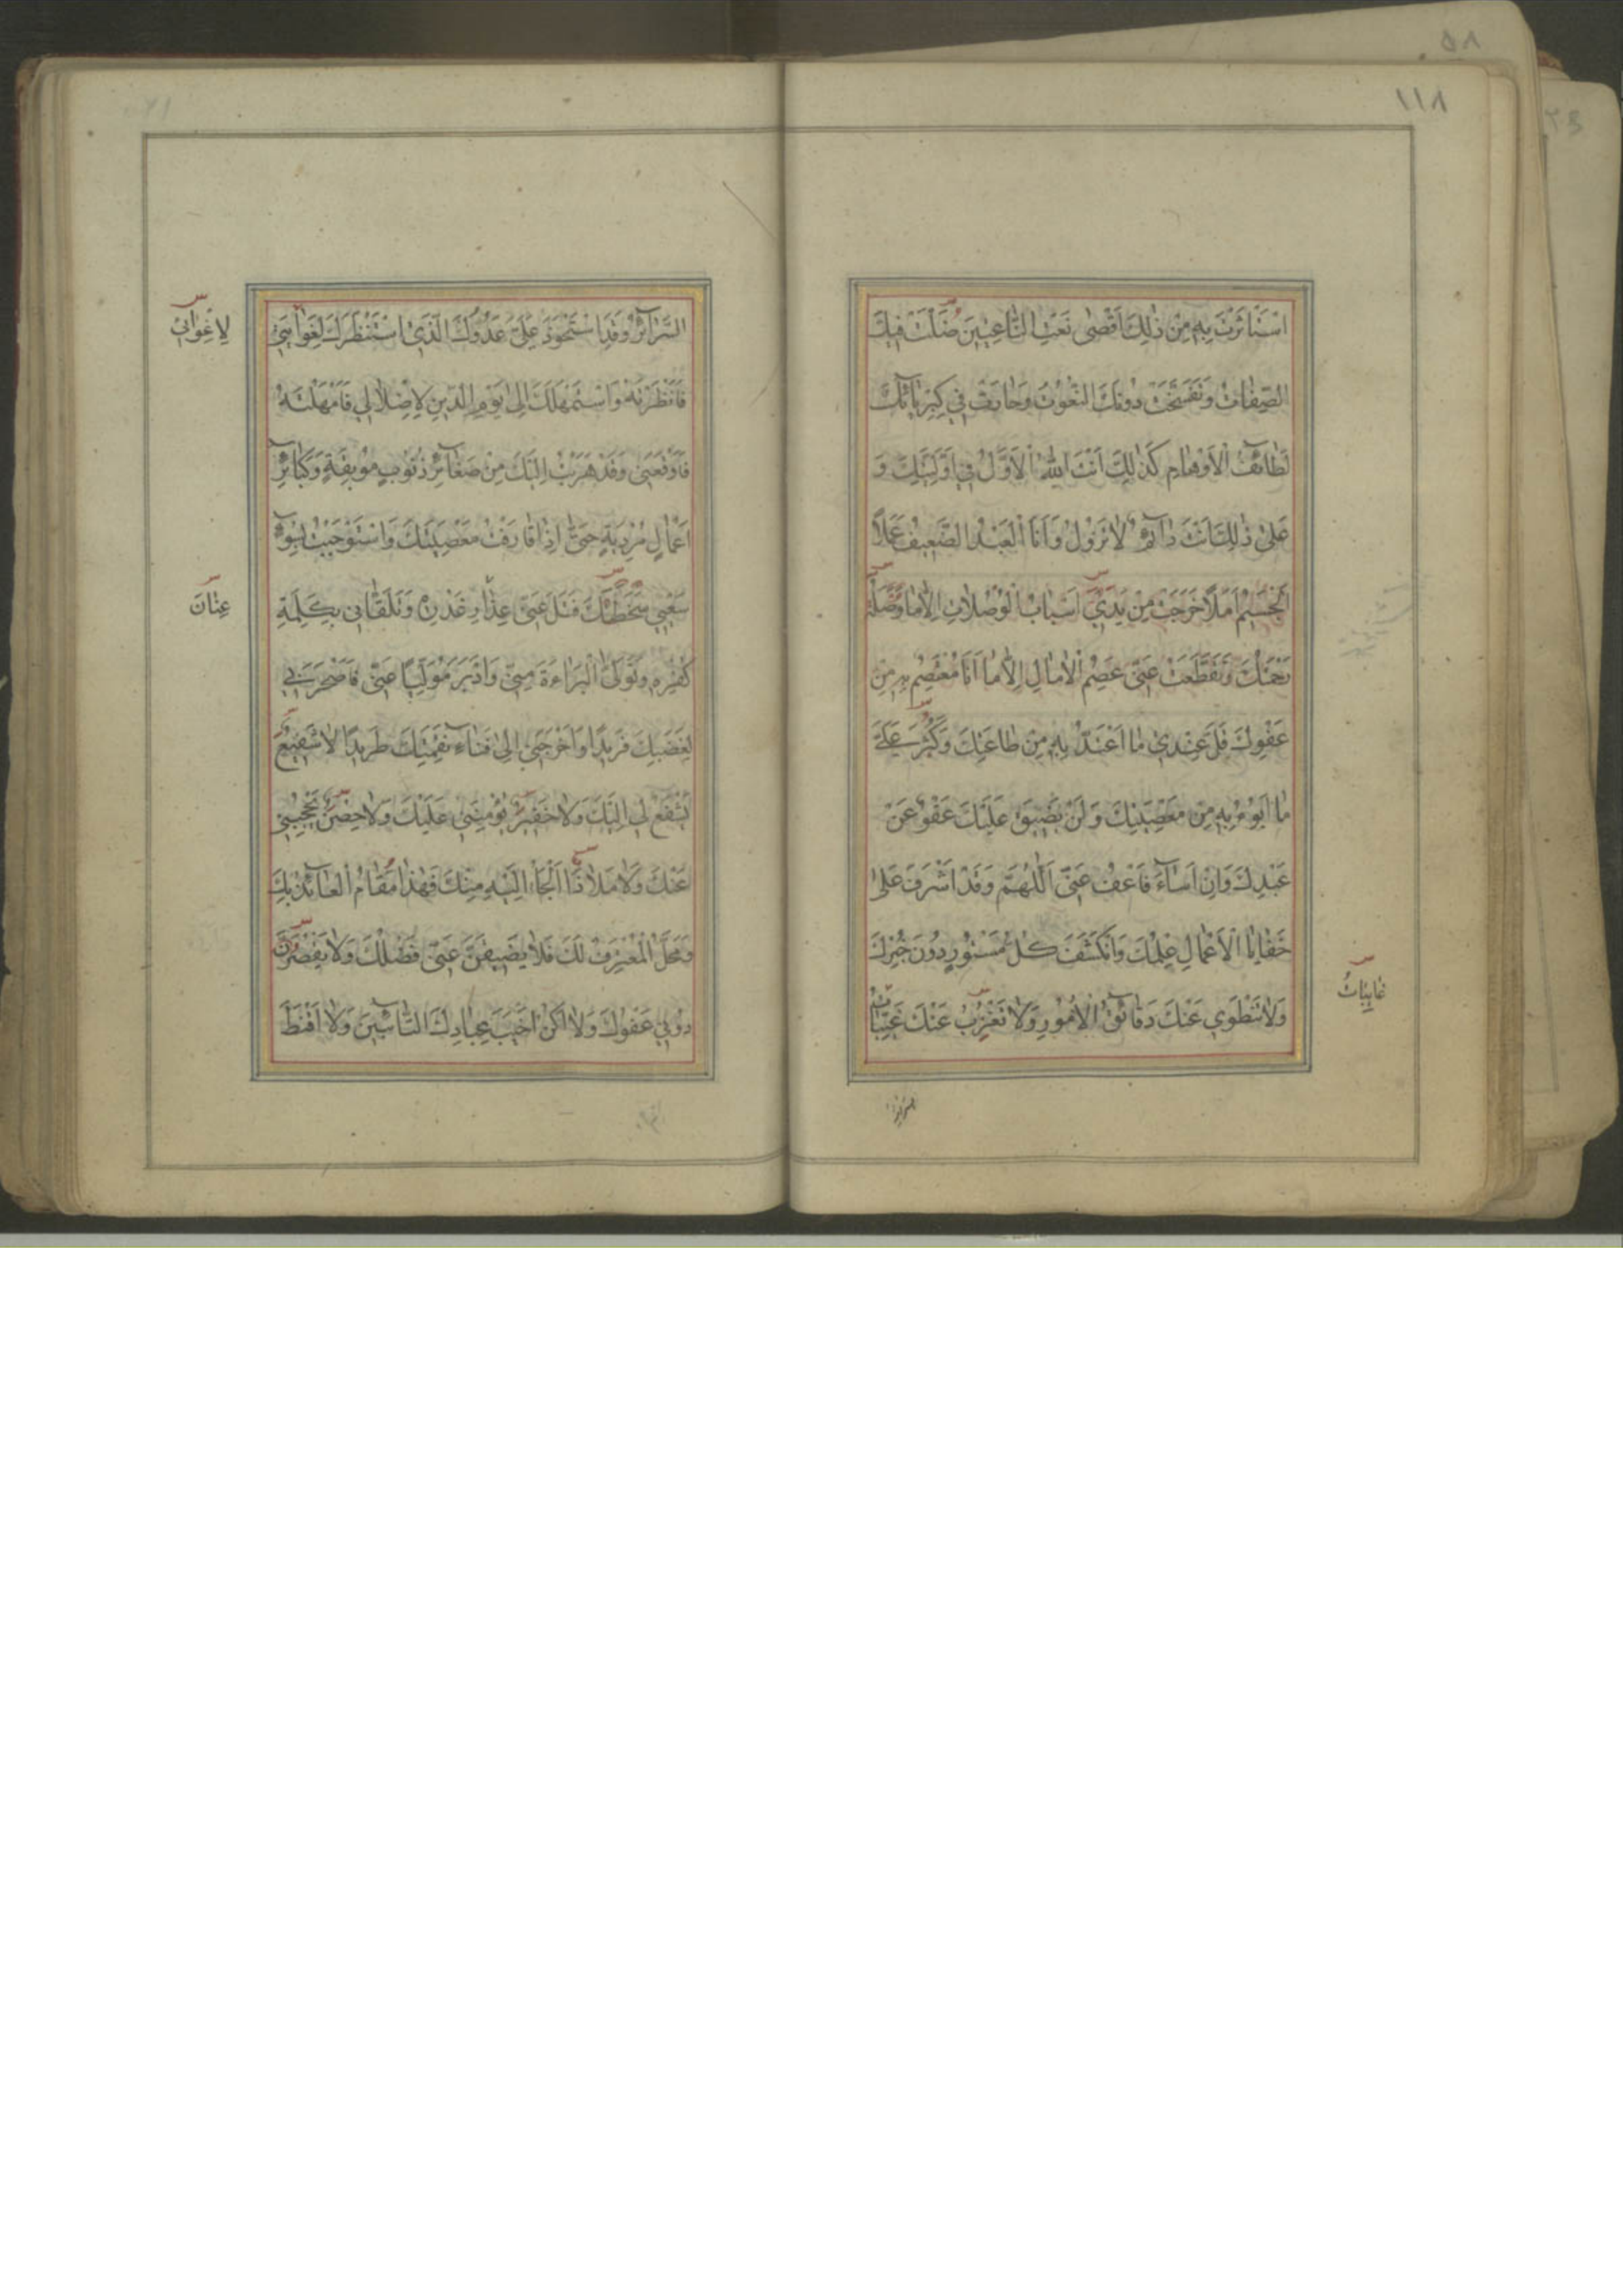 ١١٨
اسْتَأْثَرْتَ بِهِ مِنْ ذٰلِكَ اَقْصٰى نَعْتِ النّٰاعِتِينَ ضَلَّتْ فِيكَ
الصِّفٰاتُ وَتَفَسَّخَتْ دُونَكَ النُّعُوتُ وَحٰارَتْ فِي كِبْرِيٰائِكَ
لَطٰائِفُ الْاَوْهٰامِ كَذٰلِكَ اَنْتَ اللهُ الْاَوَّلُ فِي اَوَّلِيَّتِكَ وَ
عَلىٰ ذٰلِكَ اَنْتَ دٰائِمٌ لٰا تَزُولُ وَاَنَا الْعَبْدُ الضَّعِيفُ عَمَلًا
الْجَسِيمُ اَمَلًا خَرَجَتْ مِنْ يَدَيَّ اَسْبٰابُ الْوُصُلٰاتِ اِلّٰا مٰا وَصَلَهُ
رَحْمَتُكَ وَتَقَطَّعَتْ عَنِّي عِصَمُ الْاٰمٰالِ اِلّٰا مٰا اَنَا مُعْتَصِمٌ بِهِ مِنْ
عَفْوِكَ قَلَّ عِنْدِي مٰا اَعْتَدُّ بِهِ مِنْ طٰاعَتِكَ وَكَثُرَ عَلَيَّ
مٰا اَبُوءُ بِهِ مِنْ مَعْصِيَتِكَ وَلَنْ يَضِيقَ عَلَيْكَ عَفْوٌ عَنْ
عَبْدِكَ وَاِنْ اَسٰآءَ فَاعْفُ عَنِّي اَللّٰهُمَّ وَقَدْ اَشْرَفَ عَلىٰ
خَفٰايَا الْاَعْمٰالِ عِلْمُكَ وَانْكَشَفَ كُلُّ مَسْتُورٍ دُونَ خُبْرِكَ
وَلٰا تَنْطَوِي عَنْكَ دَقٰائِقُ الْاُمُورِ وَلٰا تَعْزُبُ عَنْكَ غَيِّبٰاتُ
غٰايِبٰاتُ
السَّرٰآئِرِ وَقَدِ اسْتَحْوَذَ عَلَيَّ عَدُوُّكَ الَّذِي اسْتَنْظَرَكَ لِغَوٰايَتِي
لِاِغْوٰائِي
فَاَنْظَرْتَهُ وَاسْتَمْهَلَكَ اِلىٰ يَوْمِ الدِّينِ لِاِضْلٰالِي فَاَمْهَلْتَهُ
فَاَوْقَعَنِي وَقَدْ هَرَبْتُ اِلَيْكَ مِنْ صَغٰآئِرِ ذُنُوبٍ مُوبِقَةٍ وَكَبٰآئِرِ
اَعْمٰالٍ مُرْدِيَةٍ حَتّٰى اِذٰا قٰارَفْتُ مَعْصِيَتَكَ وَاسْتَوْجَبْتُ بِسُوءِ
سَعْيِي سَخَطَكَ فَتَلَ عَنِّي عِذٰارَ غَدْرِهِ وَتَلَقّٰانِي بِكَلِمَةِ
عِنٰانَ
كُفْرِهِ وَتَوَلَّى الْبَرٰاءَةَ مِنِّي وَاَدْبَرَ مُوَلِّيًا عَنِّي فَاَصْحَرَنِي
لِغَضَبِكَ فَرِيدًا وَاَخْرَجَنِي اِلىٰ فِنٰآءِ نَقِمَتِكَ طَرِيدًا لٰا شَفِيعٌ
يَشْفَعُ لِي اِلَيْكَ وَلٰا خَفِيرٌ يُؤْمِنُنِي عَلَيْكَ وَلٰا حِصْنٌ يَحْجُبُنِي
عَنْكَ وَلٰا مَلٰاذٌ اَلْجَأُ اِلَيْهِ مِنْكَ فَهٰذٰا مَقٰامُ الْعٰآئِذِ بِكَ
وَمَحَلُّ الْمُعْتَرِفِ لَكَ فَلٰا يَضِيقَنَّ عَنِّي فَضْلُكَ وَلٰا يَقْصُرَنَّ
دُونِي عَفْوُكَ وَلٰا اَكُنْ اَخْيَبَ عِبٰادِكَ التّٰآئِبِينَ وَلٰا اَقْنَطَ